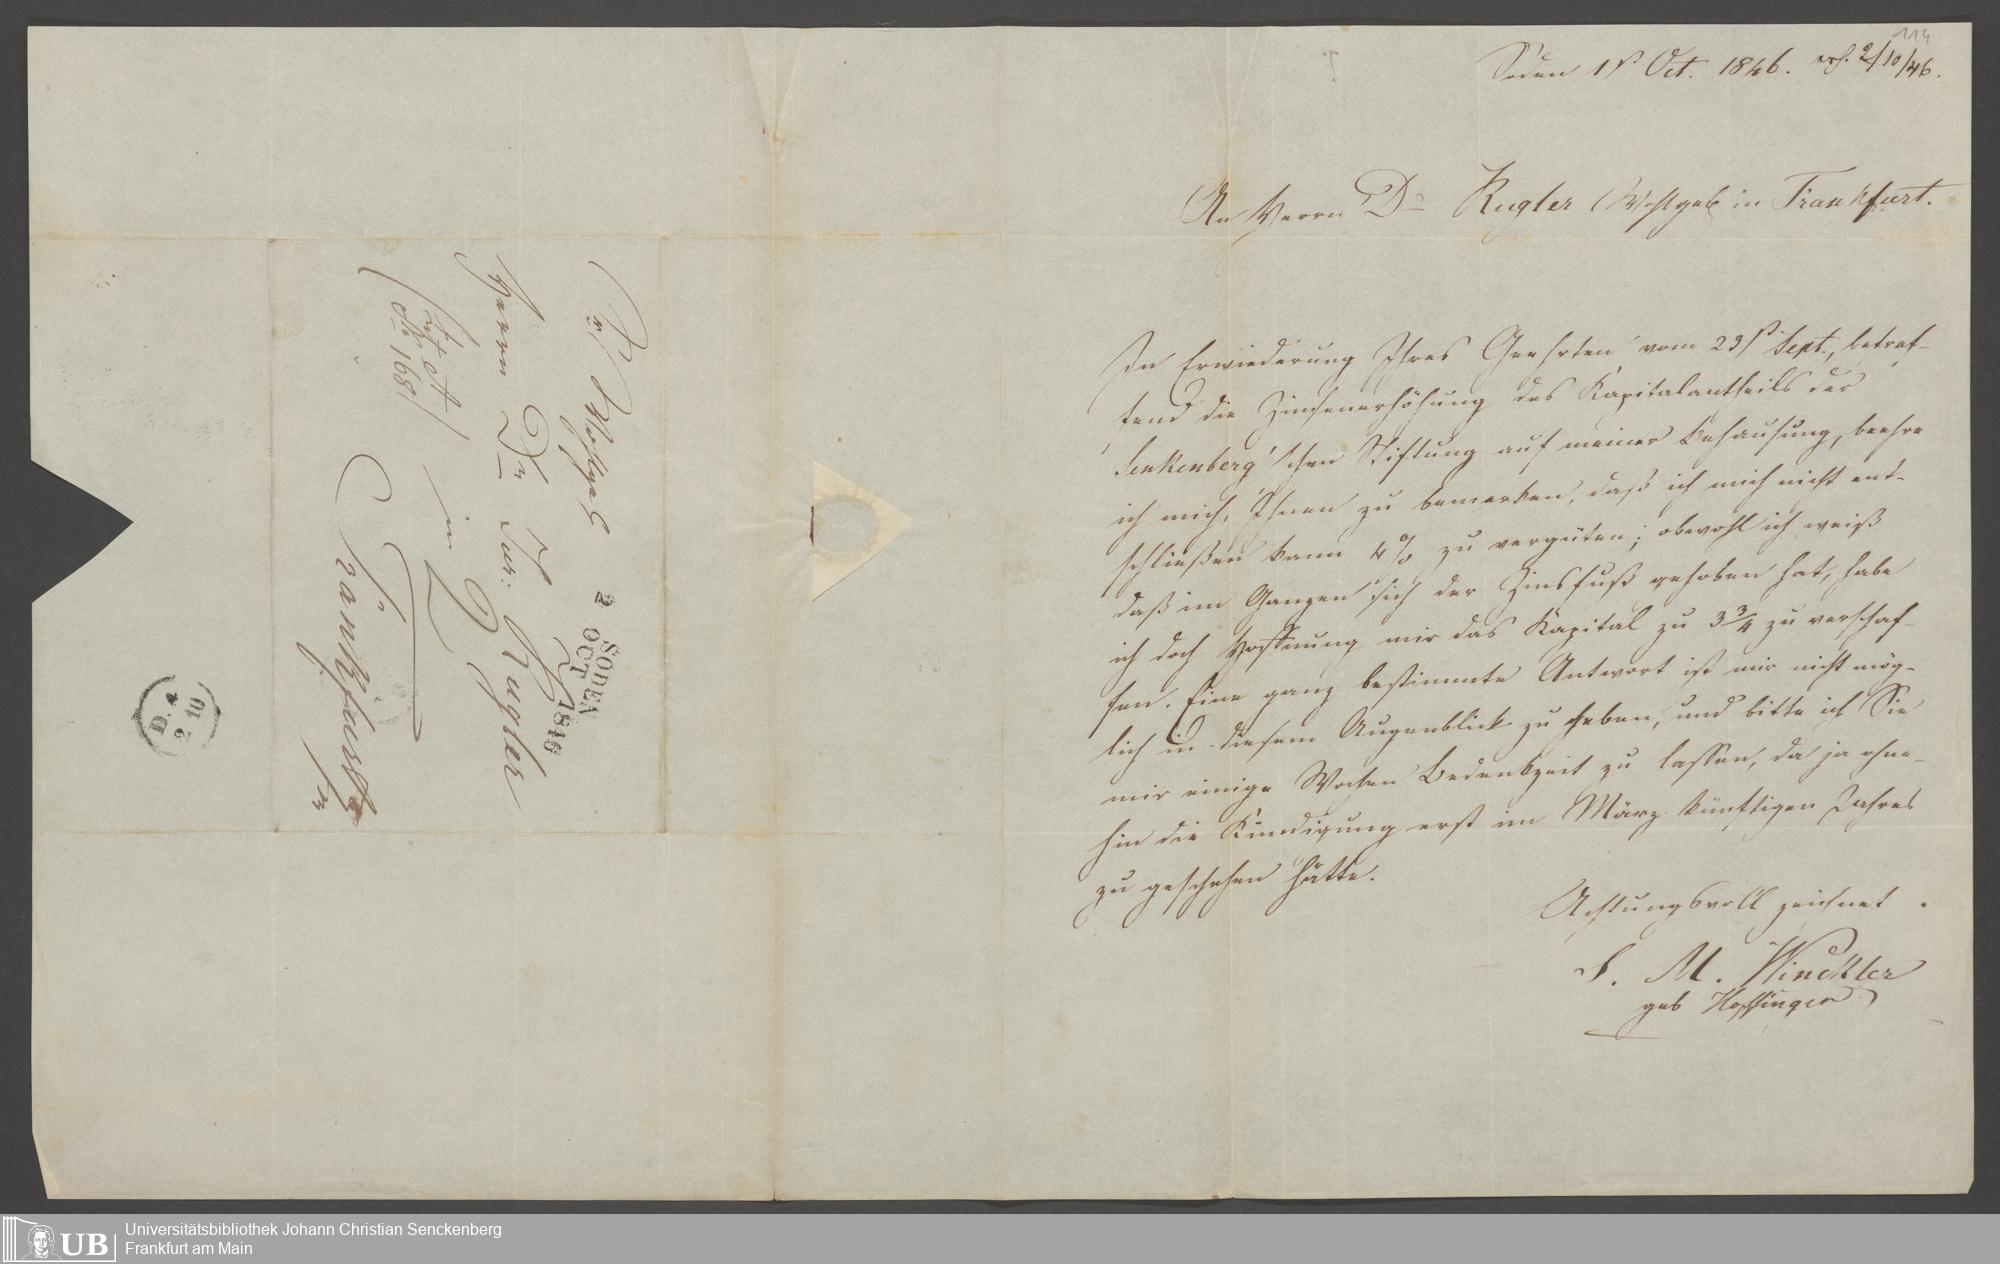 114
Soden 1st Oct. 1846. erh. 2/10/46.
An Herrn Dr Kugler Wohlgeb in Frankfurt.
In Erwiederung Ihres Geehrten vom 23st Sept., betref-
fend die Zinsenerhöhung des Kapitalantheils der
Senkenberg'schen Stiftung auf meiner Behausung, beehre
ich mich, Ihnen zu bemerken, daß ich mich nicht ent-
schließen kann 4% zu vergüten; obwohl ich weiß
daß im Ganzen sich der Zinsfuß gehoben hat, habe
ich doch Hoffnung mir das Kapital zu 3 3/4 zu verschaf-
fen. Eine ganz bestimmte Antwort ist mir nicht mög-
lich in diesem Augenblick zu geben, und bitte ich Sie
mir einige Wochen Bedenkzeit zu lassen, da ja ohne-
hin die Kündigung erst im März künftigen Jahres
zu geschehen hätte.
Achtungsvoll zeichnet.
S. M. Winckler
geb Hoffinger
Sr Wohlgeb
Herrn Dr Jur: Kugler
in
Frankfurt
Lit A
No 168
SODEN
2 OCT 1846
D. 4
2 10
Universitätsbibliothek Johann Christian Senckenberg
Frankfurt am Main
UB